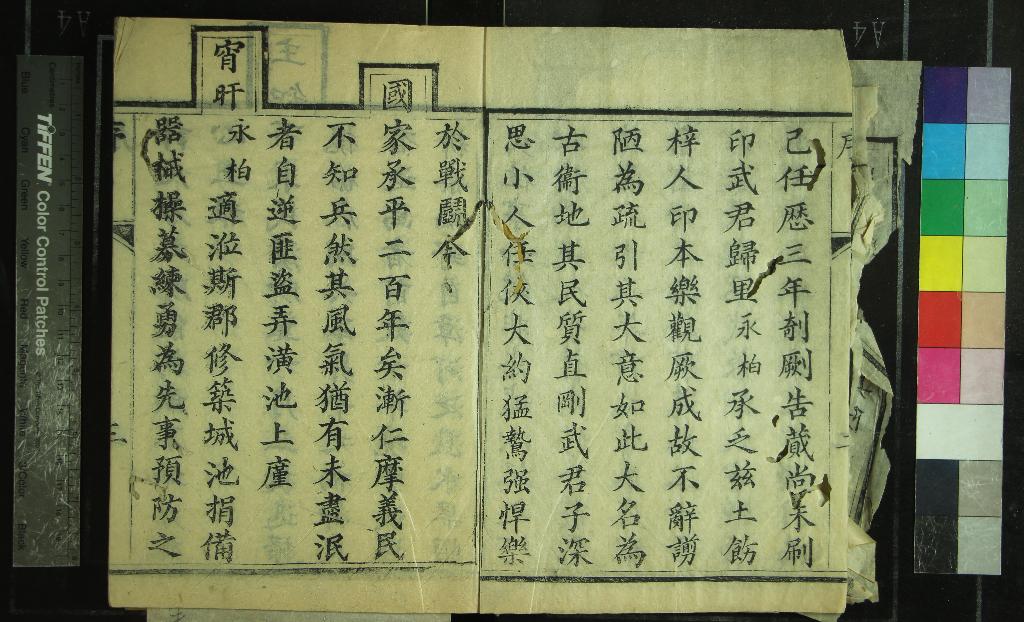 己任歴三年剞劂告蕆尚未刷
印武君歸里永柏承乏茲土飭
梓人印本樂觀厥成故不辭謭
陋為疏引其大意如此大名為
古衛地其民質直剛武君子深
思小人任俠大約猛鷙强悍樂
於戰鬭今
國家承平二百年矣漸仁摩義民
不知兵然其風氣猶有未盡泯
者自逆匪盜弄潢池上廑
宵旰
永柏適涖斯郡修築城池捐備
器械操募練勇為先事預防之
序
三
TIFFEN Color Control Patches
Blue Cyan Green Yellow Red Magenta White 3/Color Black
A4
A4